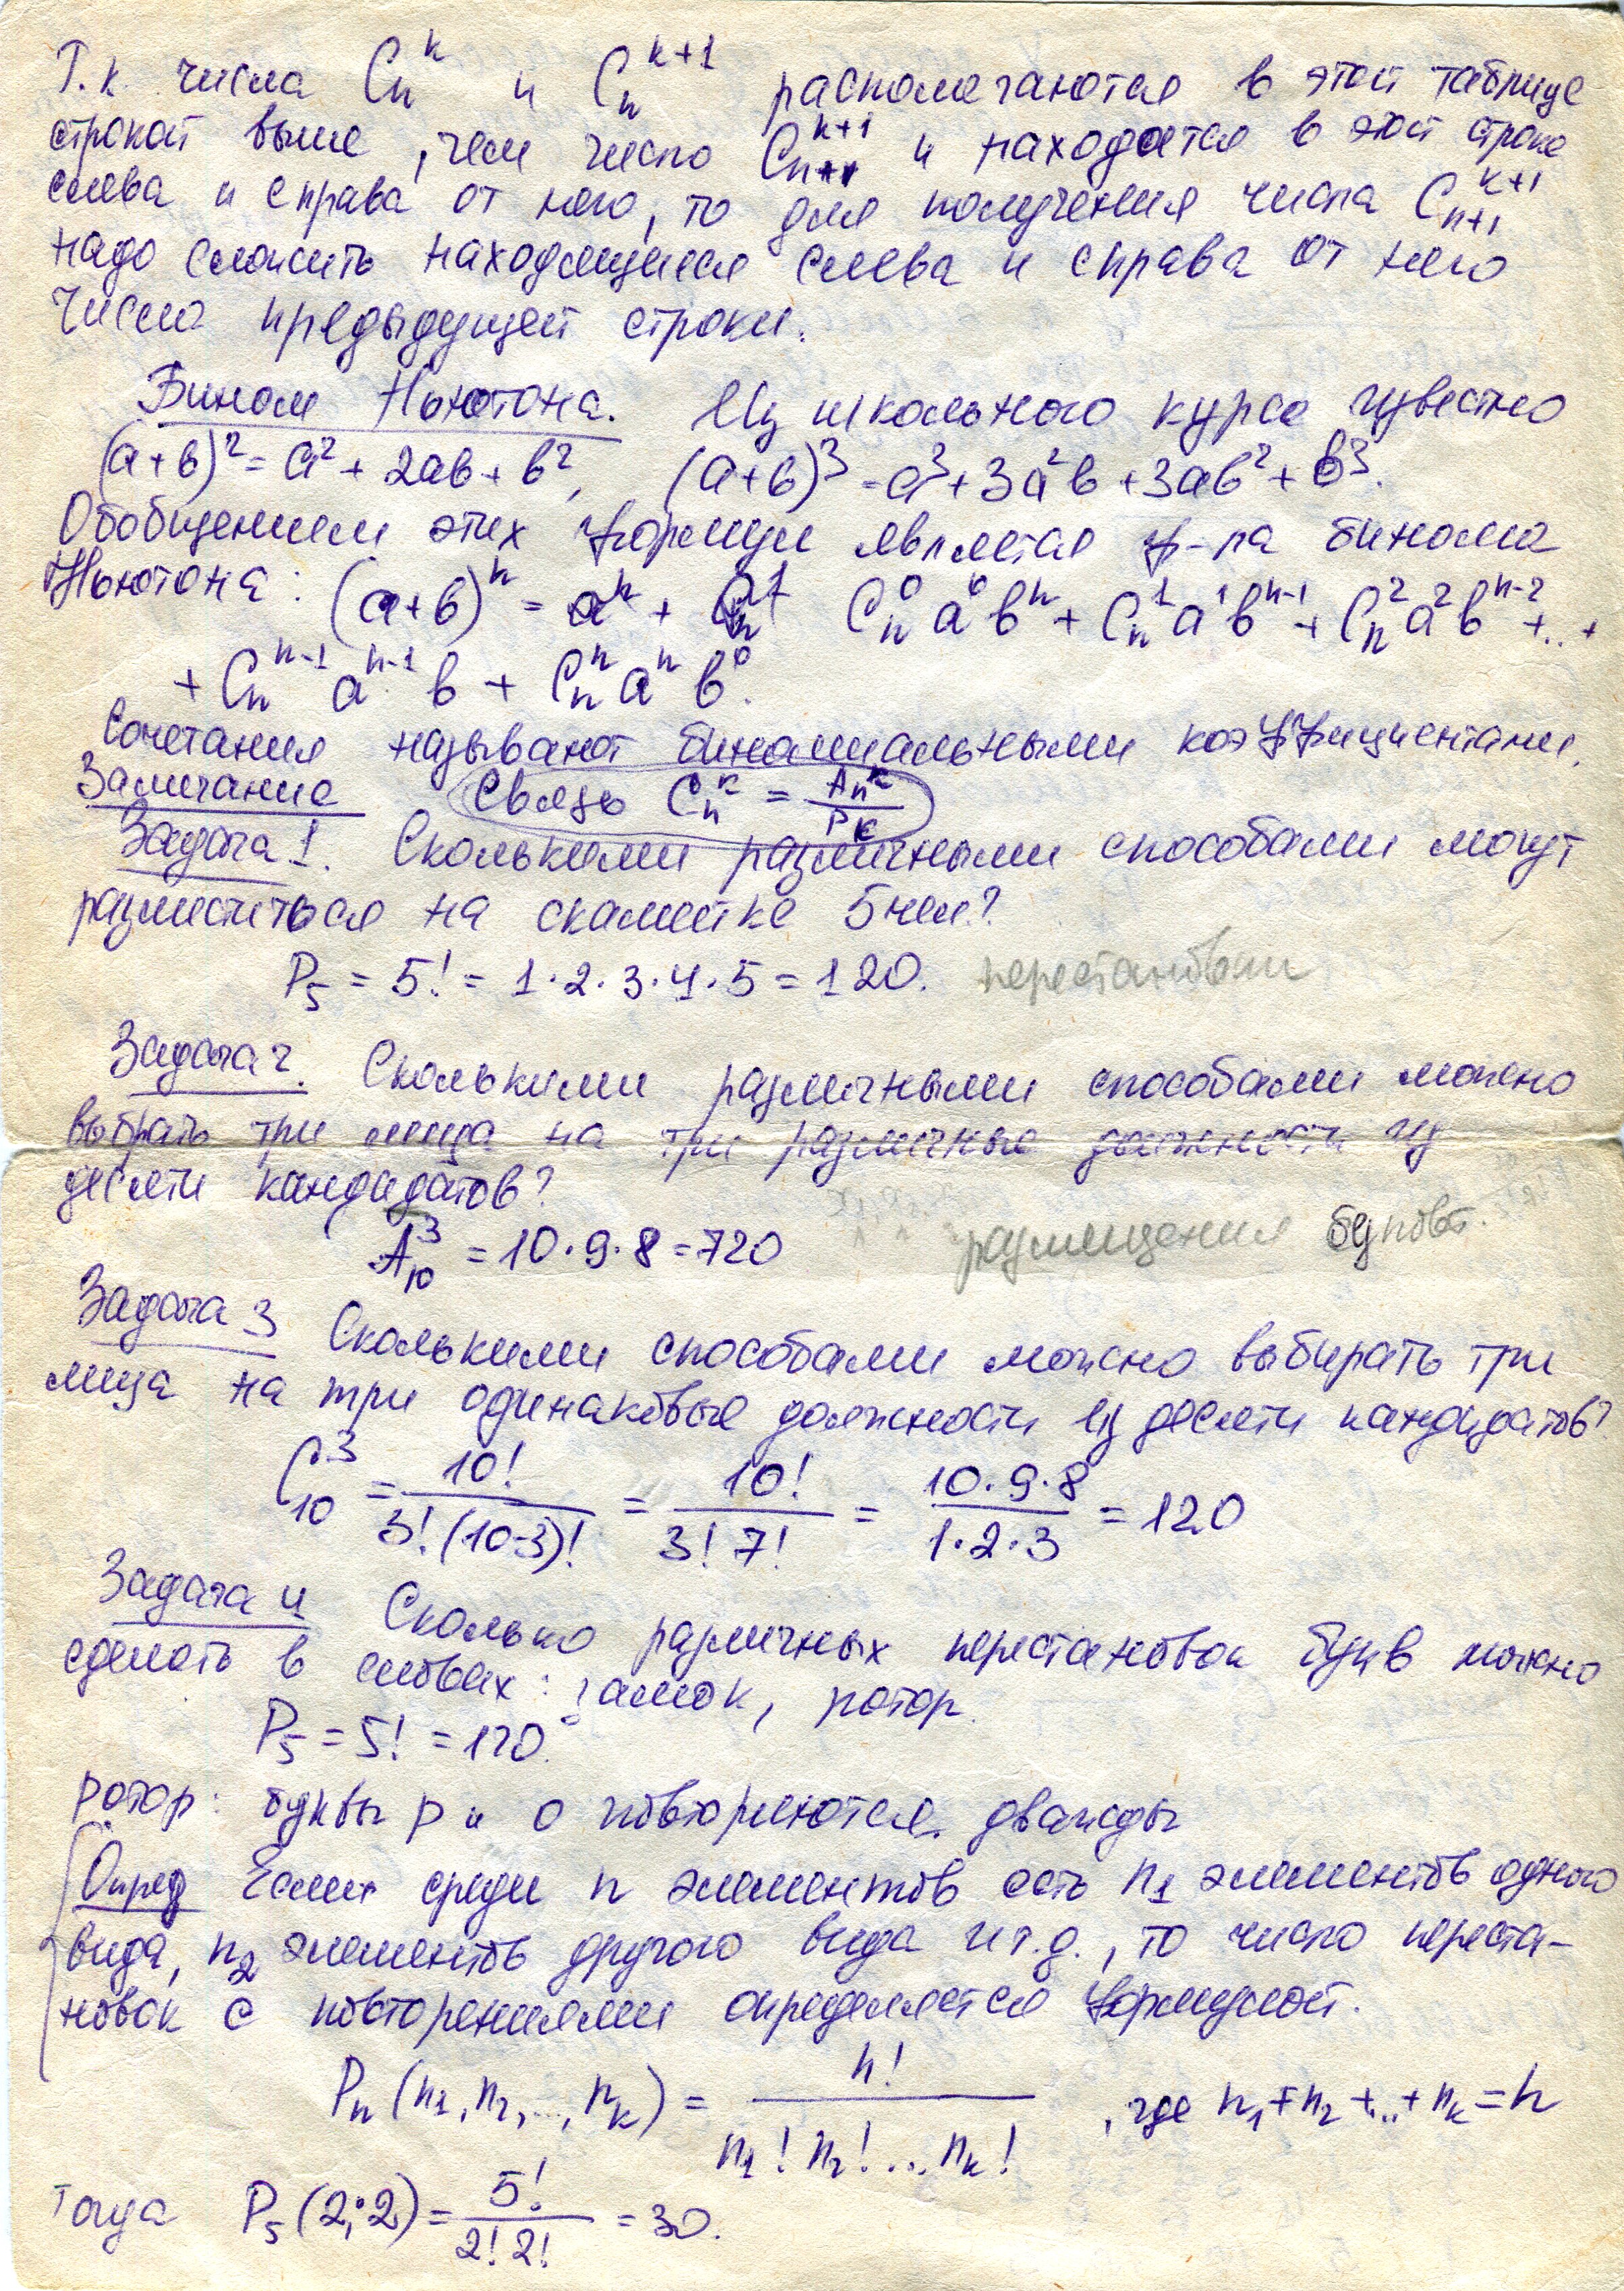 Т.к. числа C_n^k и C_n^{k+1} располагаются в этой таблице
строкой выше, чем число C_{n+1}^{k+1} и находятся в этой строке
слева и справа от него, то для получения числа C_{n+1}^{k+1}
надо сложить находящиеся слева и справа от него
числа предыдущей строки.
Бином Ньютона. Из школьного курса известно
(a+b)² = a² + 2ab + b², (a+b)³ = a³ + 3a²b + 3ab² + b³.
Обобщением этих формул является ф-ла бинома
Ньютона: (a+b)^n = C_n^0 a^0 b^n + C_n^1 a^1 b^{n-1} + C_n^2 a^2 b^{n-2} + ... +
+ C_n^{n-1} a^{n-1} b + C_n^n a^n b^0.
Сочетания называют биномиальными коэффициентами.
Замечание Связь C_n^k = A_n^k / P_k
Задача 1. Сколькими различными способами могут
разместиться на скамейке 5 чел?
P_5 = 5! = 1·2·3·4·5 = 120. перестановки
Задача 2. Сколькими различными способами можно
выбрать три лица на три различные должности из
десяти кандидатов?
A_{10}^3 = 10·9·8 = 720 размещения без повт.
Задача 3 Сколькими способами можно выбирать три
лица на три одинаковые должности из десяти кандидатов?
C_{10}^3 = 10! / 3!(10-3)! = 10! / 3! 7! = 10·9·8 / 1·2·3 = 120
Задача 4 Сколько различных перестановок букв можно
сделать в словах: замок, ротор.
P_5 = 5! = 120.
ротор: буквы р и о повторяются дважды
Опред Если среди n элементов есть n_1 элементов одного
вида, n_2 элементов другого вида и т.д., то число переста-
новок с повторениями определяется формулой.
P_n (n_1, n_2, ..., n_k) = n! / n_1! n_2! ... n_k! , где n_1 + n_2 + ... + n_k = n
Тогда P_5 (2; 2) = 5! / 2! 2! = 30.